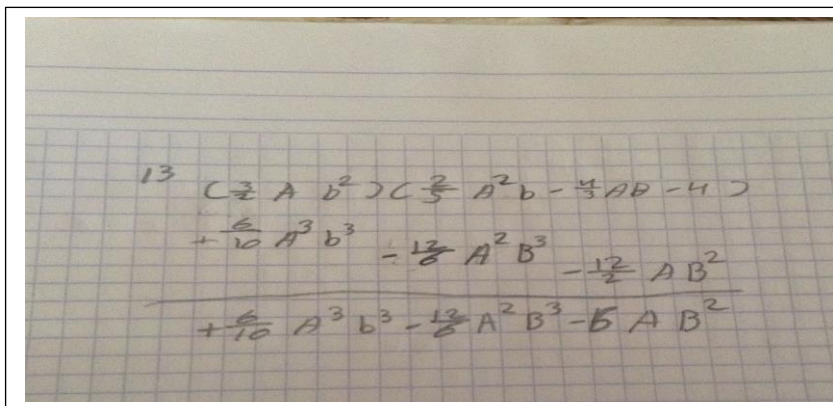 13 (3/2 A b²)(2/5 A²b - 4/3 AB - 4)
+ 6/10 A³ b³ - 12/6 A² B³ - 12/2 A B²
+ 6/10 A³ b³ - 12/6 A² B³ - 6 A B²